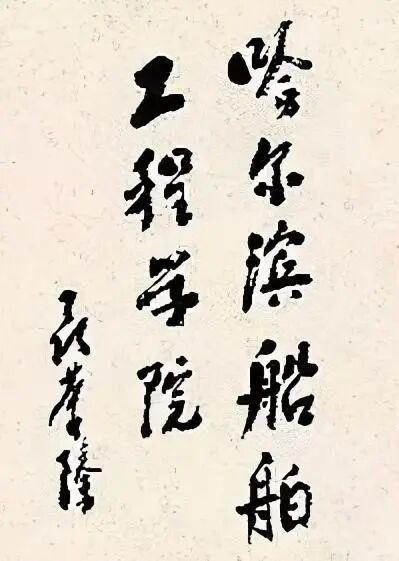 哈尔滨船舶
工程学院
聂荣臻